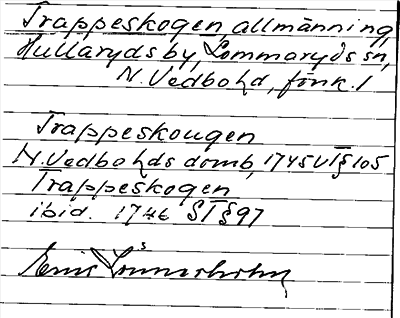 Trappeskogen, allmänning,
Hullaryds by, Lommaryds sn,
N. Vedbo hd, Jönk. l
Trappeskougen
N. Vedbo hds domb, 1745 VT § 105
Trappeskogen
ibid. 1746 ST § 97